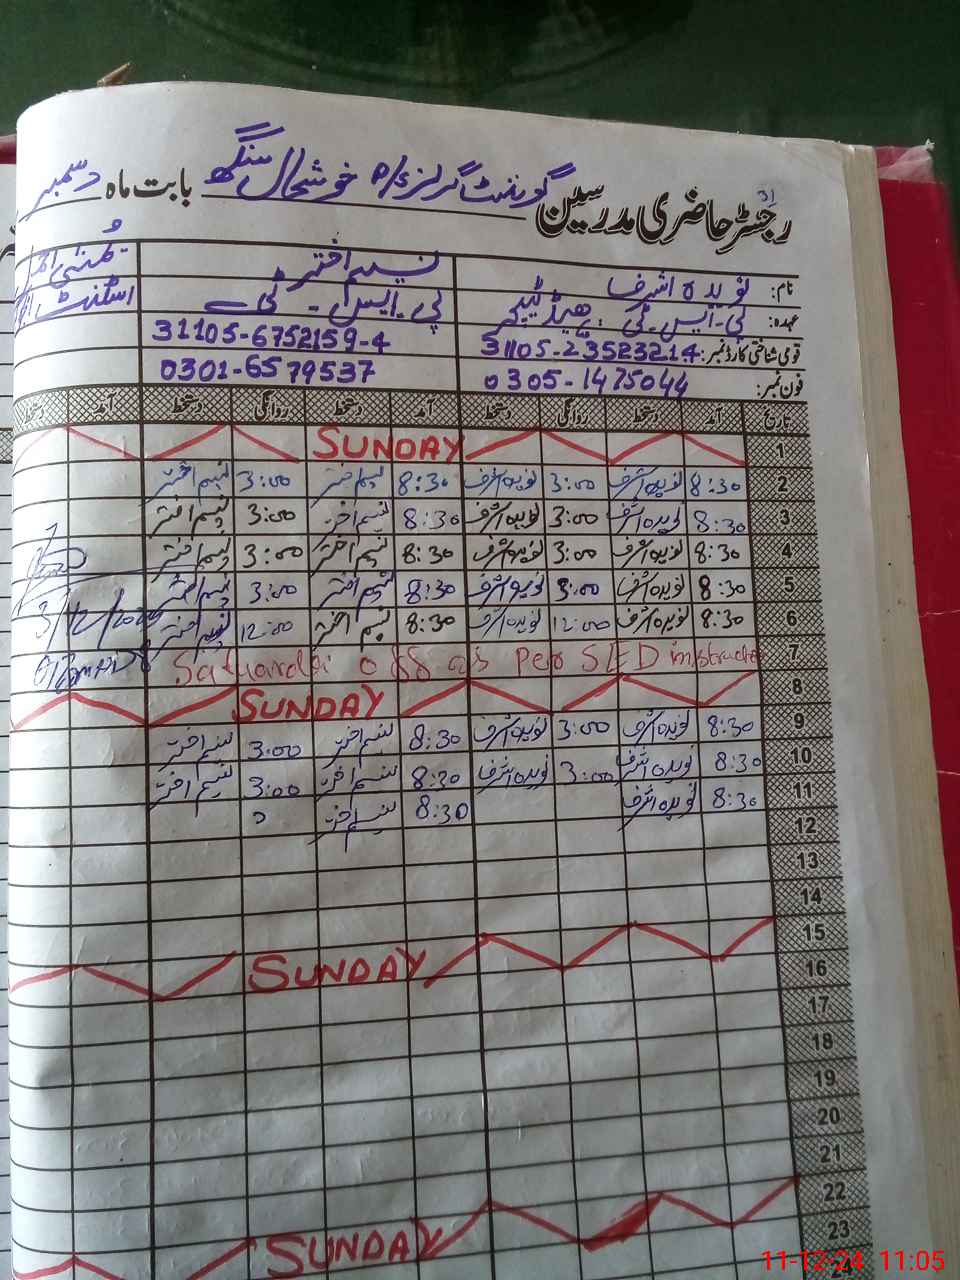 رجسٹر حاضری مدرسین گورنمنٹ گرلز P/S خوشحال سنگھ بابت ماہ دسمبر
نام: نویدہ اشرف نسیم اختر
عہدہ: پی۔ایس۔ٹی ہیڈ ٹیچر پی۔ایس۔ٹی
قومی شناختی کارڈ نمبر: 31105-23523214 31105-6752159-4
فون نمبر: 0305-1475044 0301-6579537
تاریخ آمد دستخط روانگی دستخط آمد دستخط روانگی دستخط آمد دستخط
1 SUNDAY
2 8:30 نویدہ اشرف 3:00 نویدہ اشرف 8:30 نسیم اختر 3:00 نسیم اختر
3 8:30 نویدہ اشرف 3:00 نویدہ اشرف 8:30 نسیم اختر 3:00 نسیم اختر
4 8:30 نویدہ اشرف 3:00 نویدہ اشرف 8:30 نسیم اختر 3:00 نسیم اختر
5 8:30 نویدہ اشرف 3:00 نویدہ اشرف 8:30 نسیم اختر 3:00 نسیم اختر
6 8:30 نویدہ اشرف 12:00 نویدہ اشرف 8:30 نسیم اختر 12:00
7 Saturday off as Per SED
8 SUNDAY
9 8:30 نویدہ اشرف 3:00 نویدہ اشرف 8:30 نسیم اختر 3:00 نسیم اختر
10 8:30 نویدہ اشرف 3:00 نویدہ اشرف 8:30 نسیم اختر 3:00 نسیم اختر
11 8:30 نویدہ اشرف 8:30 نسیم اختر
12
13
14
15 SUNDAY
16
17
18
19
20
21
22 SUNDAY
23
11-12-24 11:05